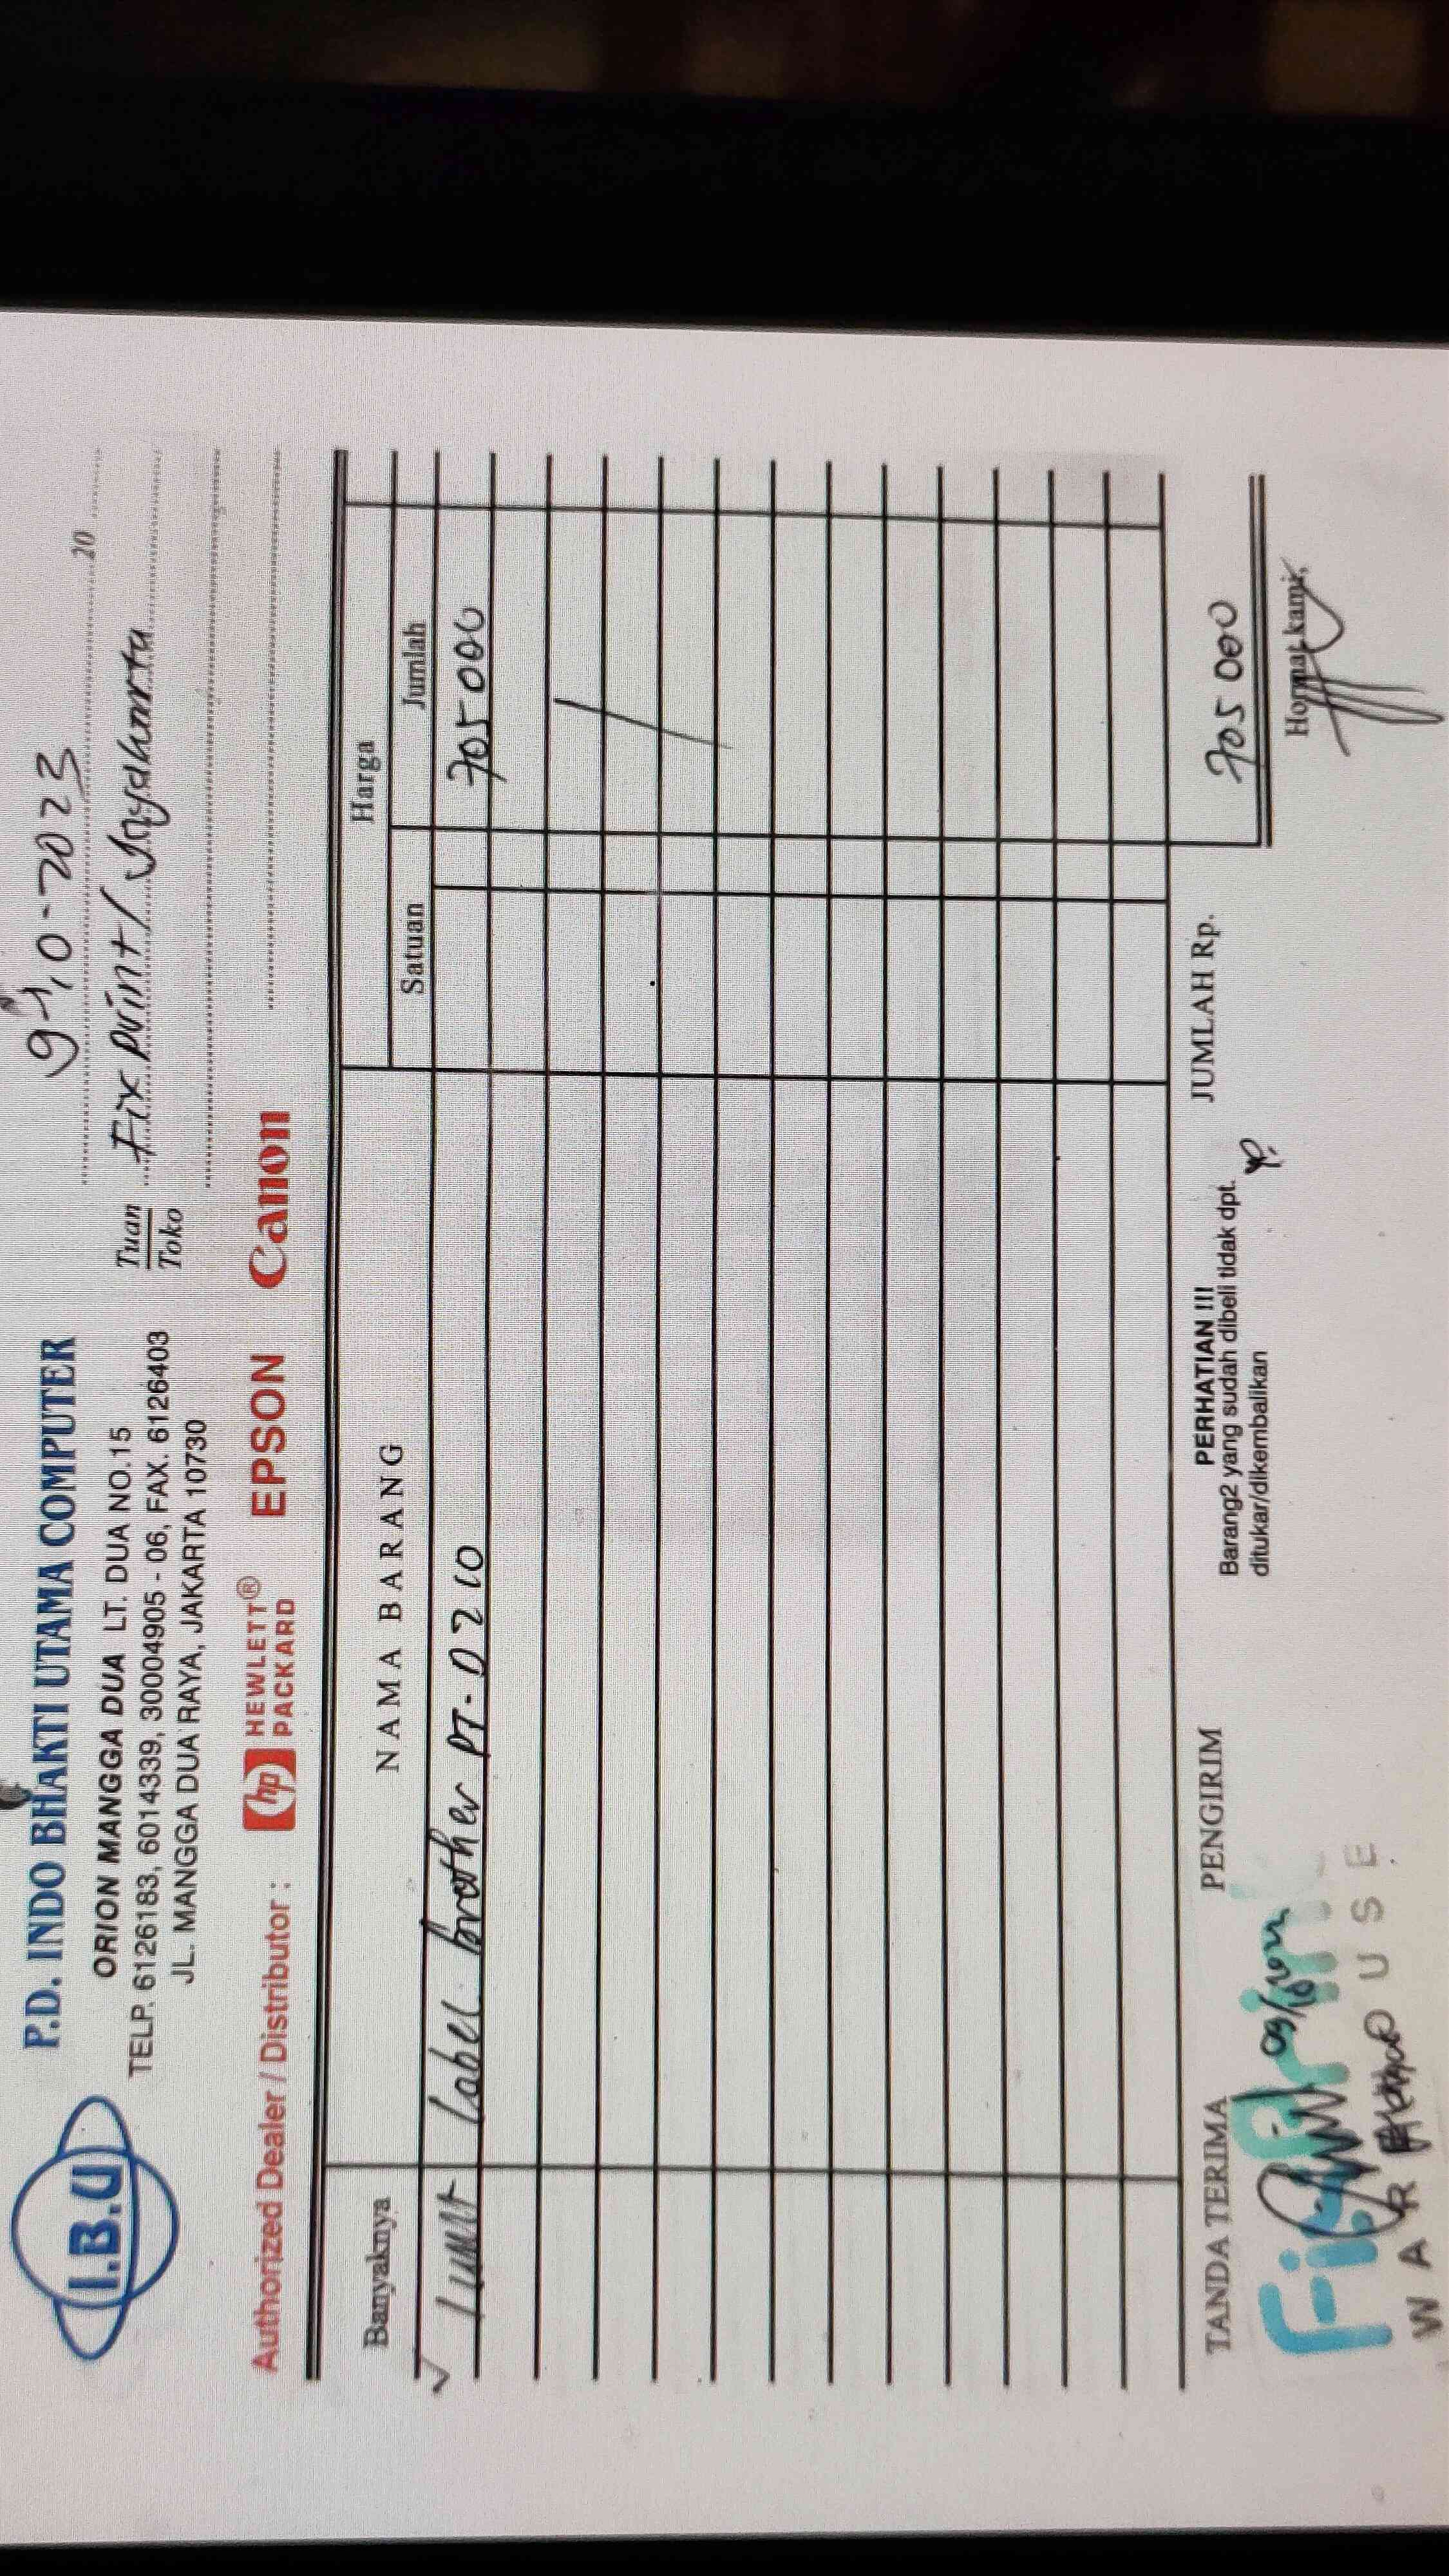 I.B.U
P.D. INDO BHAKTI UTAMA COMPUTER
ORION MANGGA DUA LT. DUA NO.15
TELP. 6126183, 6014339, 30004905 - 06, FAX. 6126403
JL. MANGGA DUA RAYA, JAKARTA 10730
9-10-2023 20
Tuan
Toko
Fix Print / Jayakarta
Authorized Dealer / Distributor :
hp HEWLETT®
PACKARD
EPSON
Canon
Banyaknya NAMA BARANG Harga
Satuan Jumlah
1 unit Label brother PT-D210 705 000
TANDA TERIMA PENGIRIM
PERHATIAN !!!
Barang2 yang sudah dibeli tidak dpt.
ditukar/dikembalikan
JUMLAH Rp. 705 000
Hormat kami,
FixPrint
WAREHOUSE